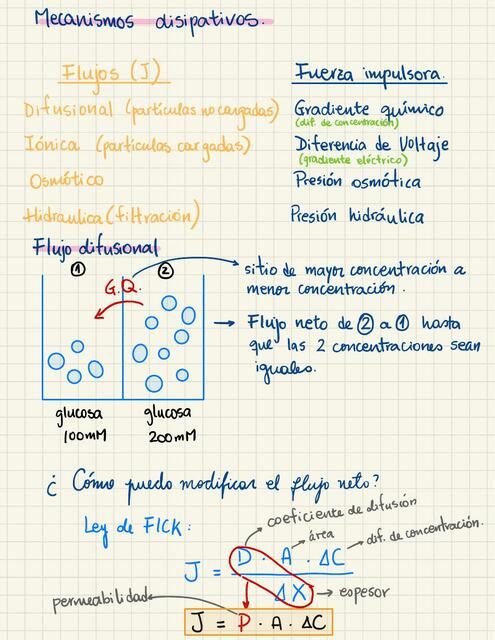 Mecanismos disipativos.
Flujos (J)
Fuerza impulsora.
Difusional (partículas no cargadas)
Gradiente químico
(dif. de concentración)
Iónica (particulas cargadas)
Diferencia de Voltaje
(gradiente eléctrico)
Osmótico
Presión osmótica
Hidraulica (filtración)
Presión hidráulica
Flujo difusional
① ②
G.Q.
sitio de mayor concentración a
menor concentración.
→ Flujo neto de ② a ① hasta
que las 2 concentraciones sean
iguales.
glucosa
100mM
glucosa
200mM
¿ Cómo puedo modificar el flujo neto?
coeficiente de difusión
Ley de FICK:
área
dif. de concentración.
J = D · A · ΔC
ΔX
→ espesor
permeabilidad
J = P · A · ΔC